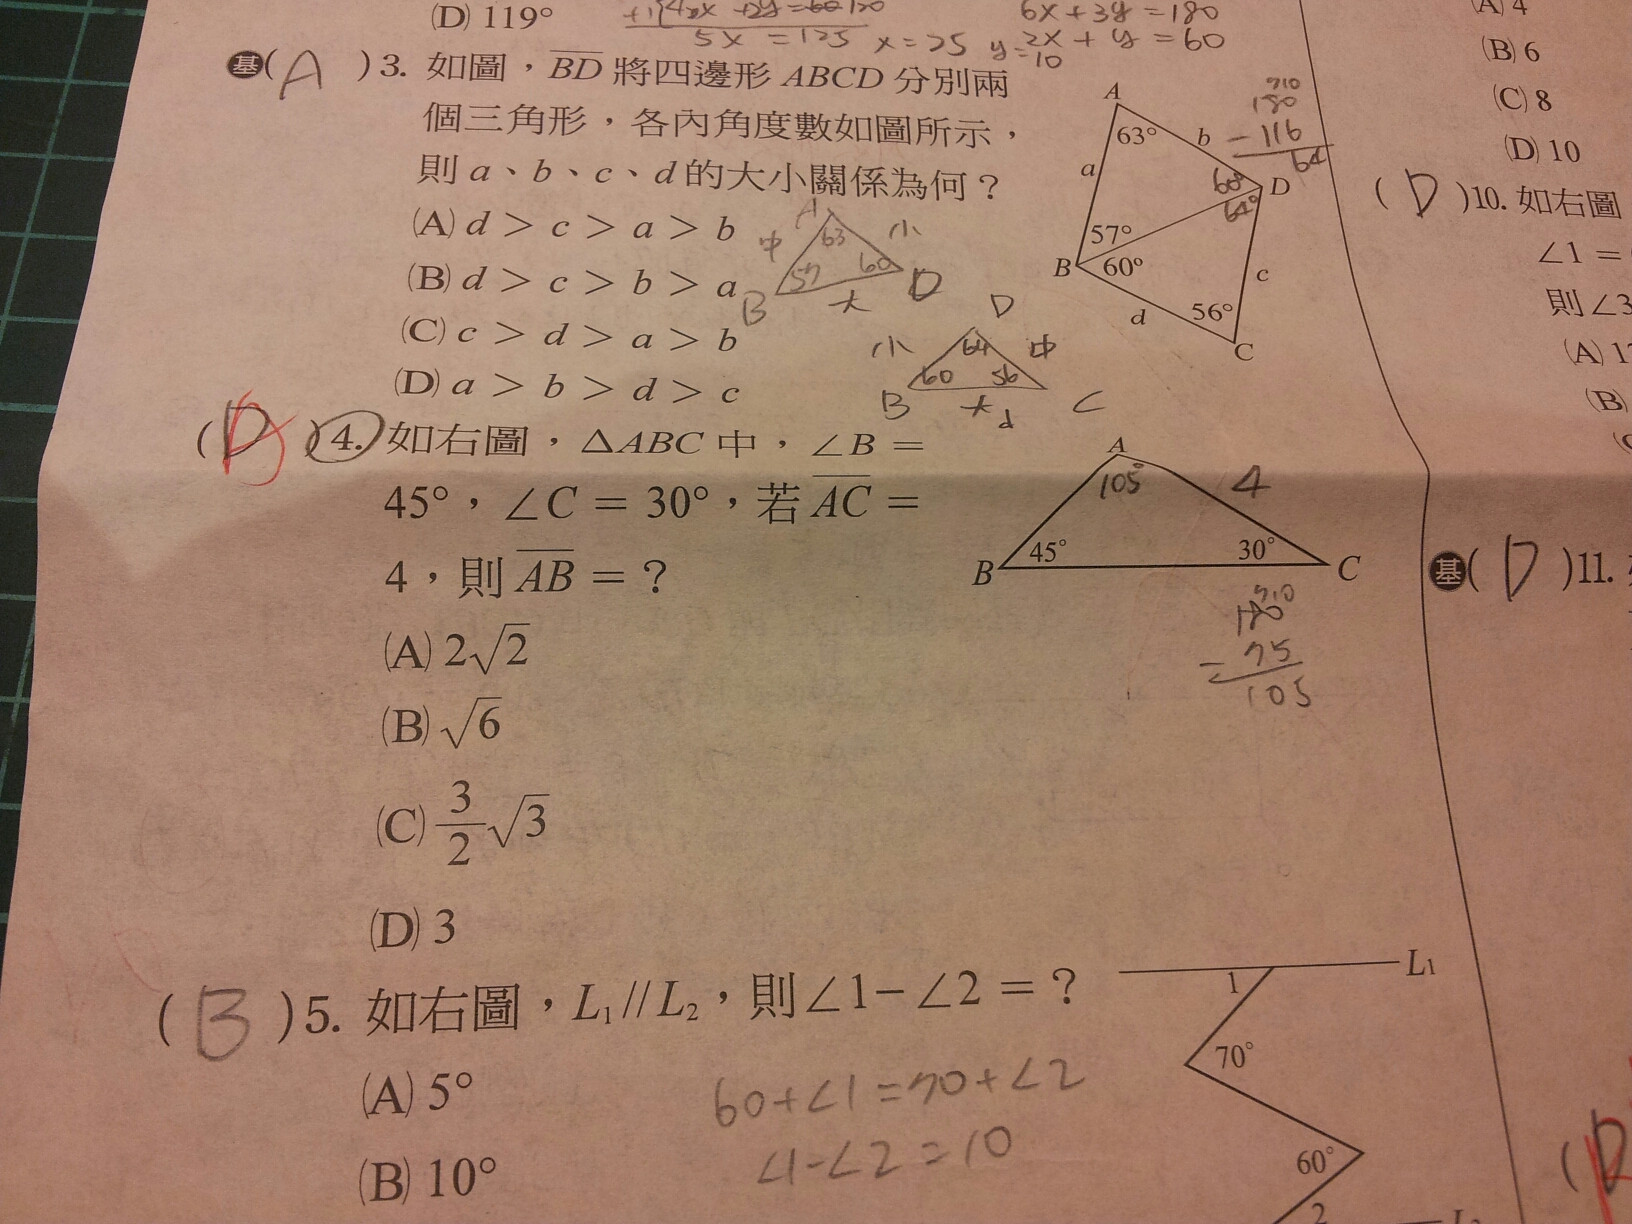 (D) 119°
5x = 125 x = 25 y = 10
6x + 3y = 180
2x + y = 60
基( A )3. 如圖，BD 將四邊形 ABCD 分別兩
個三角形，各內角度數如圖所示，
則 a、b、c、d 的大小關係為何？
(A) d > c > a > b
(B) d > c > b > a
(C) c > d > a > b
(D) a > b > d > c
A
63° b
a
60° D
64°
57°
B 60° c
d 56°
C
180
- 116
64
A
中 63 小
57 60
B 大 D
D
小 64 中
60 56
B 大 d C
( D )4. 如右圖，△ABC 中，∠B =
45°，∠C = 30°，若 AC =
4，則 AB = ？
(A) 2√2
(B) √6
(C) 3/2 √3
(D) 3
A
105° 4
B 45° 30° C
180
- 75
105
( B )5. 如右圖，L₁//L₂，則∠1−∠2 = ？
(A) 5°
(B) 10°
60+∠1=70+∠2
∠1-∠2=10
L₁
1
70°
60°
2
(A) 4
(B) 6
(C) 8
(D) 10
( D )10. 如右圖
∠1 =
則∠3
(A) 1
(B)
基( D )11.